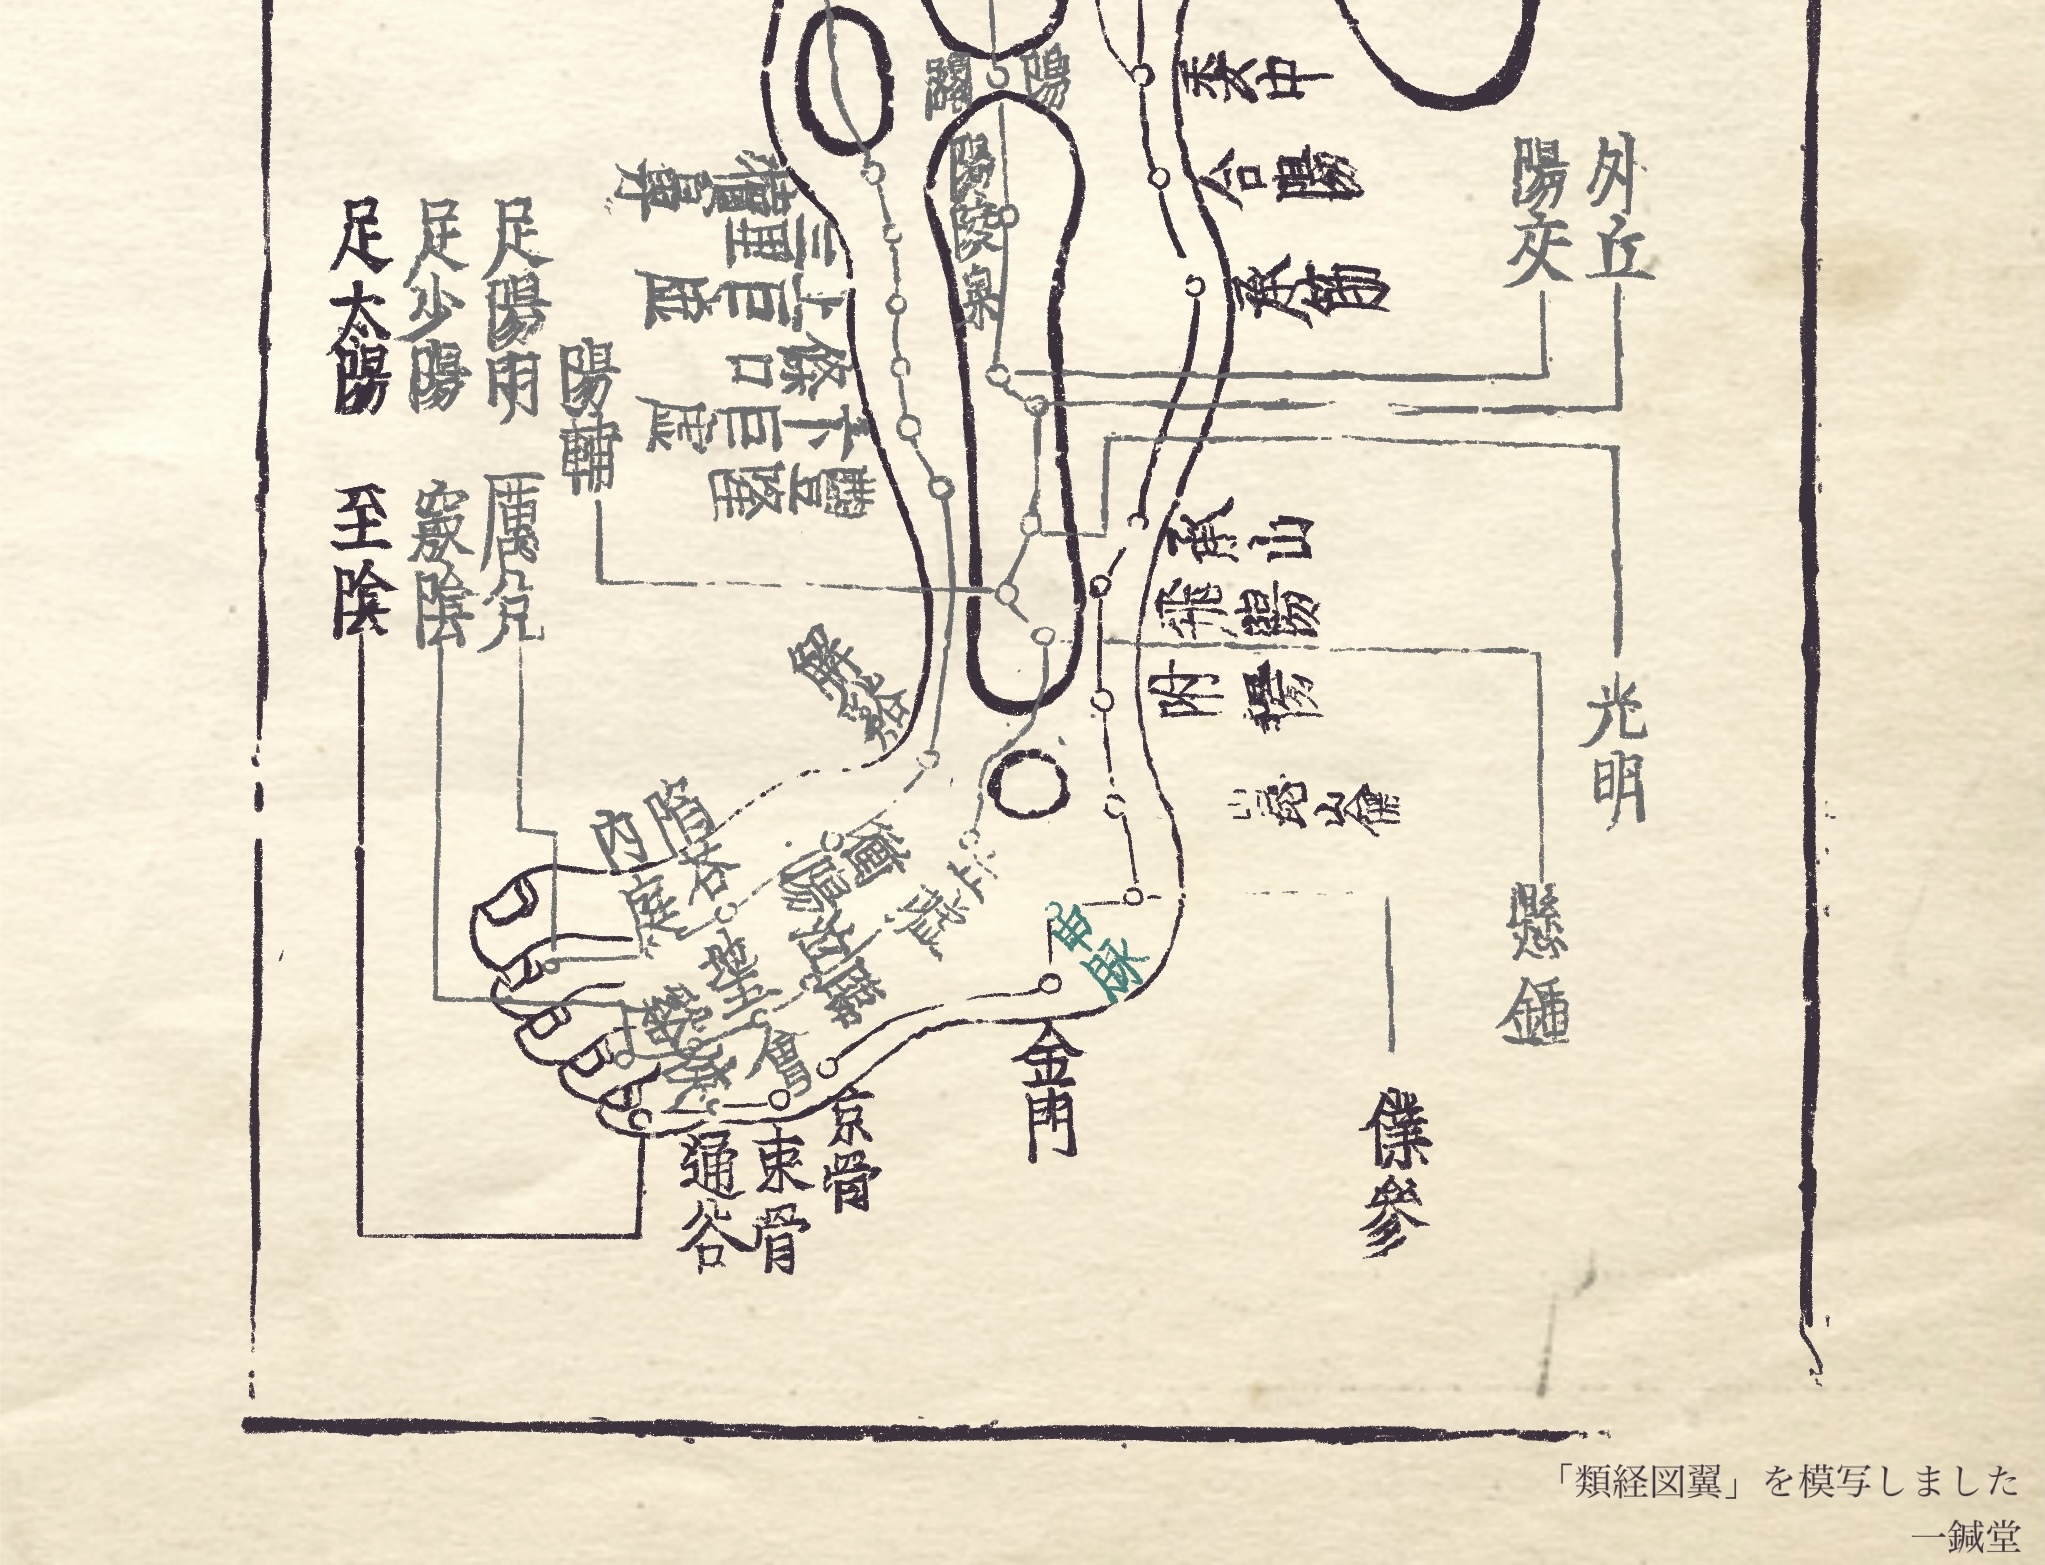 外丘
陽交
光明
懸鍾
委中
合陽
承筋
承山
飛陽
附陽
崑崙
僕參
申脈
金門
京骨
束骨
通谷
陽關
陽陵泉
犢鼻
三里
上巨虛
條口
下巨虛
豐隆
陽輔
足陽明 厲兌
足少陽 竅陰
足太陽 至陰
解谿
衝陽
陷谷
內庭
丘墟
臨泣
「類経図翼」を模写しました
一鍼堂